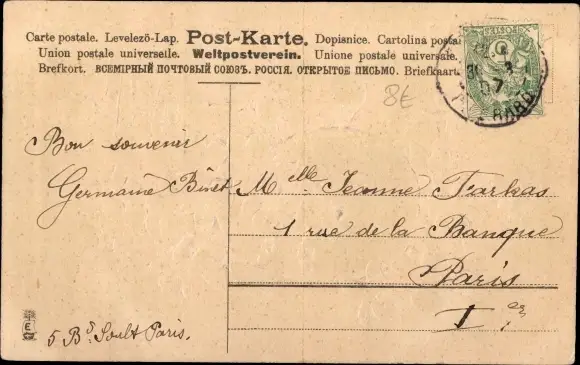 Carte postale. Levelező-Lap. Post-Karte. Dopisnice. Cartolina postale
Union postale universelle. Weltpostverein. Unione postale universale.
Brefkort. ВСЕМІРНЫЙ ПОЧТОВЫЙ СОЮЗЪ. РОССІЯ. ОТКРЫТОЕ ПИСЬМО. Briefkaart
8€
07
Bon souvenir
Germaine Binet
Melle Jeanne Farkas
1 rue de la Banque
Paris
Ier
5 Bd Soult Paris.